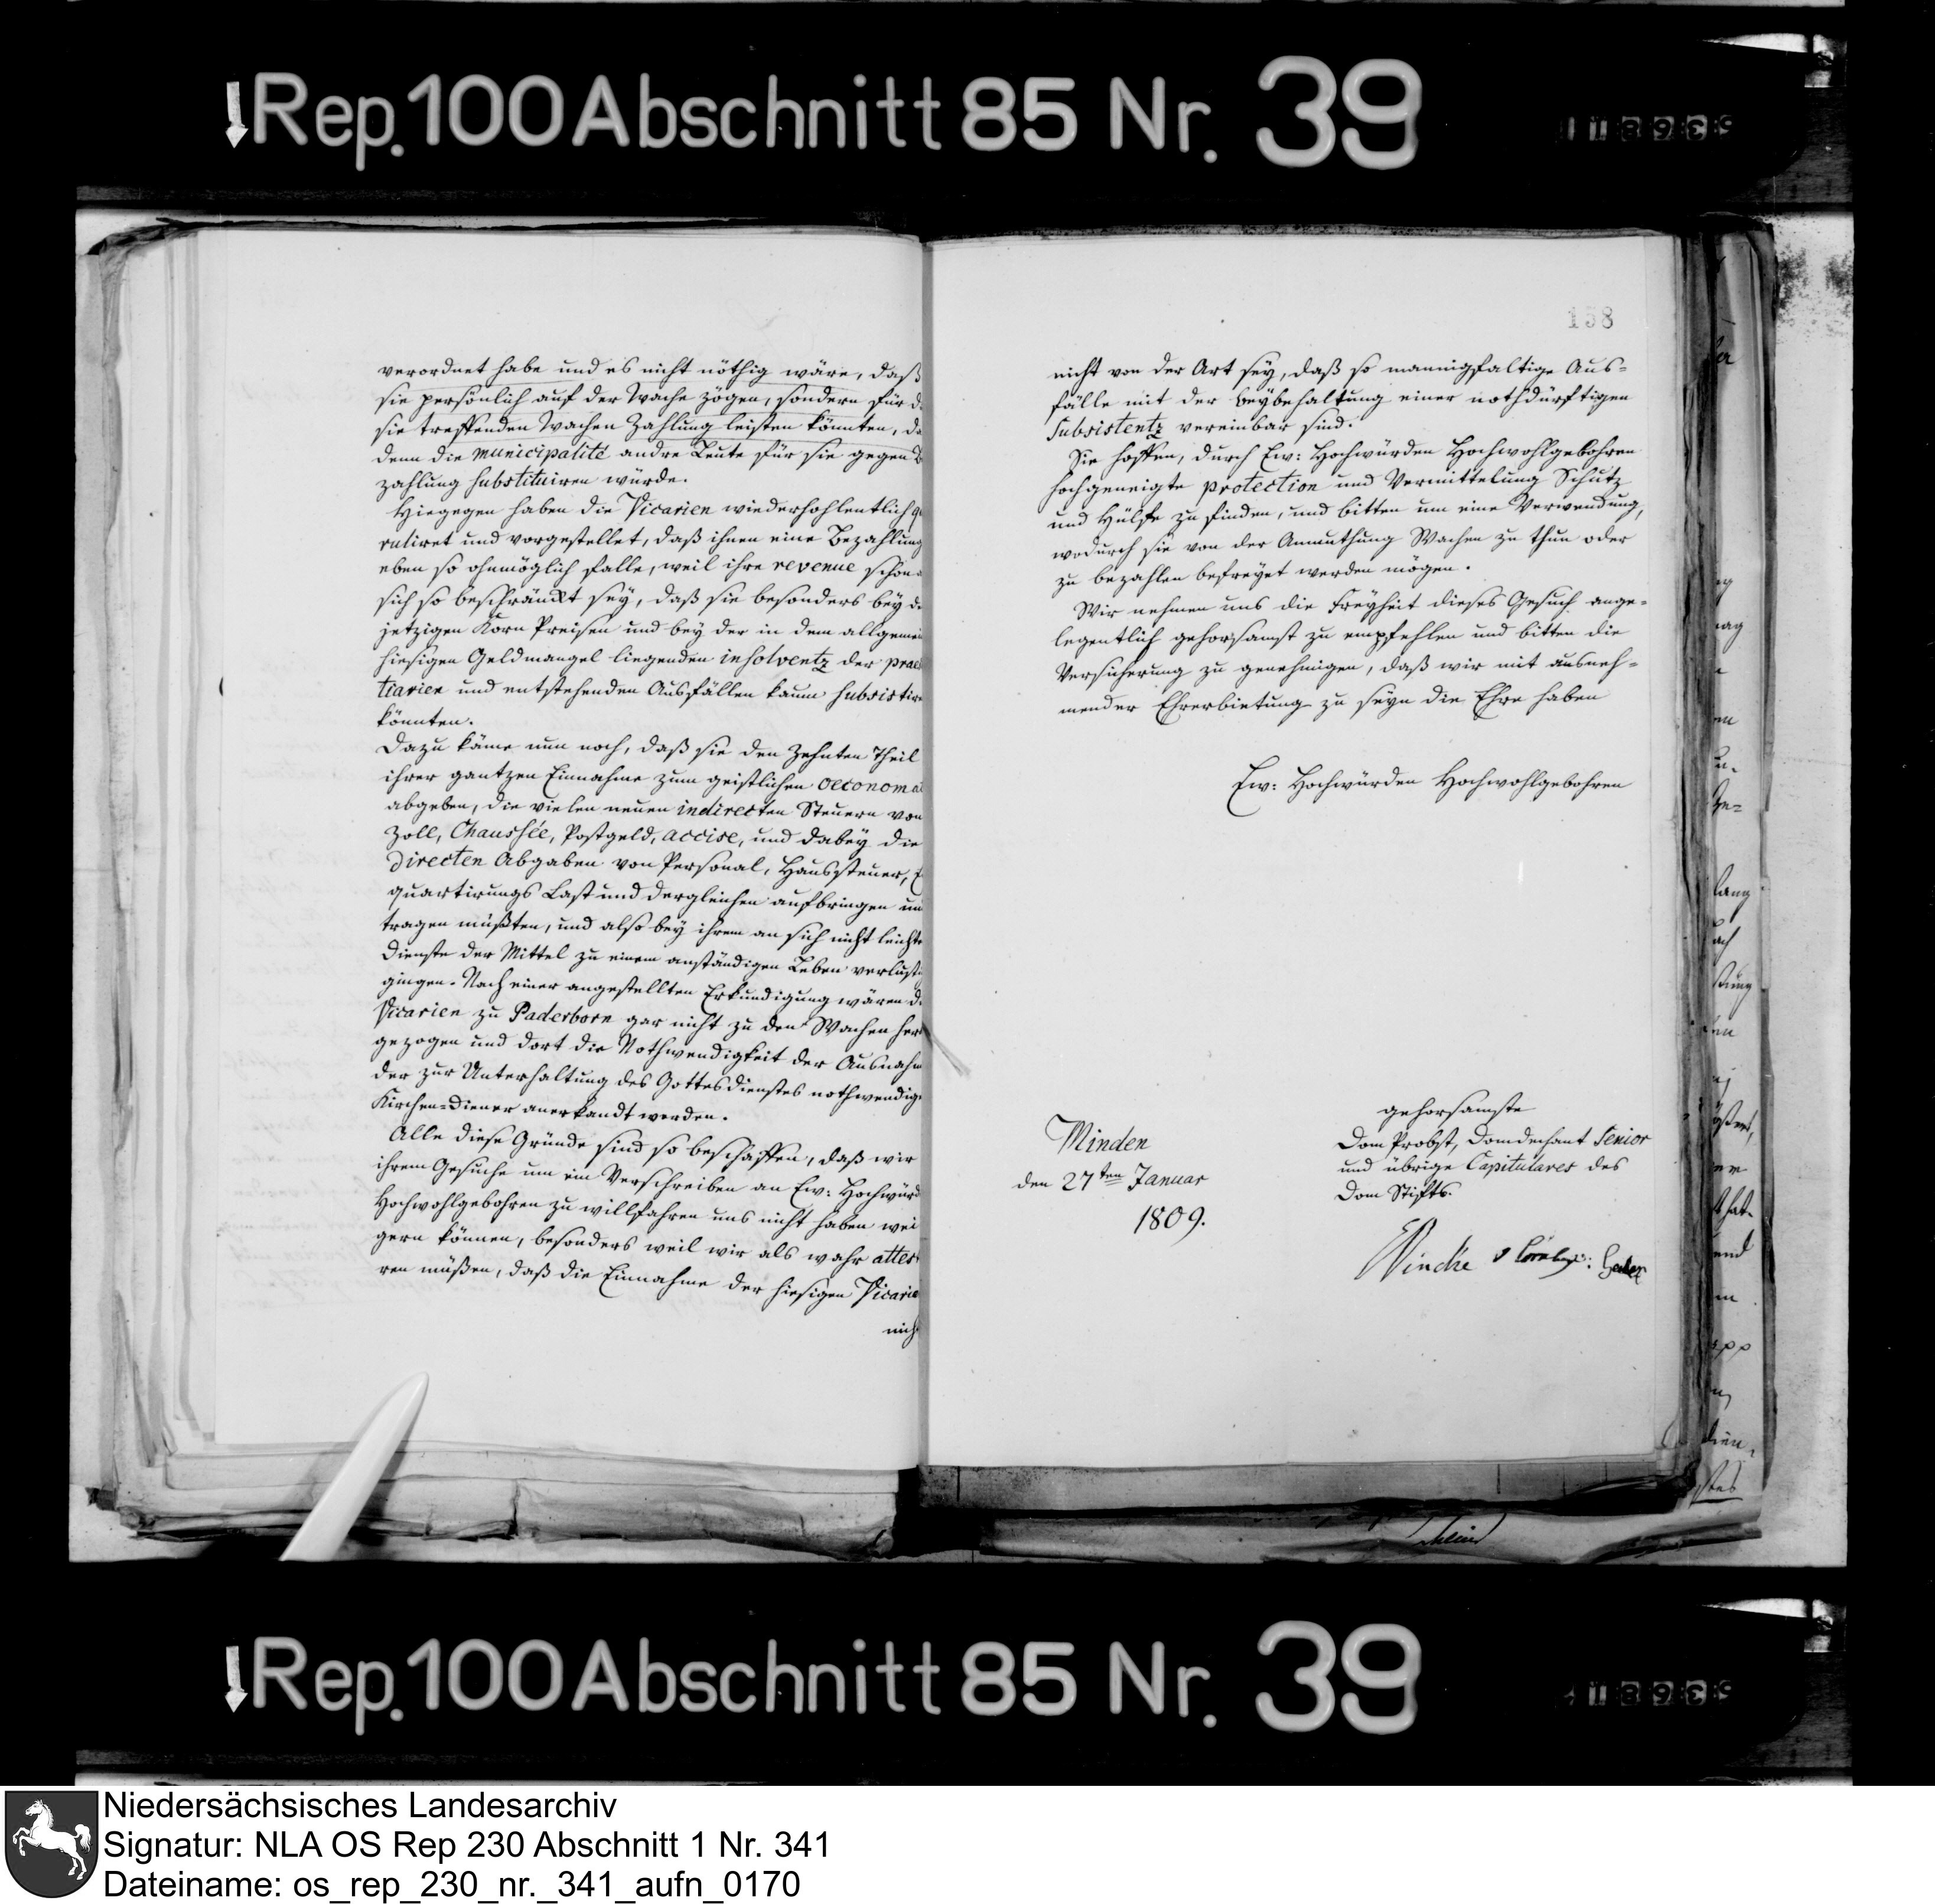 Rep. 100 Abschnitt 85 Nr. 39
verordnet habe und es nicht nöthig wäre, daß
sie persönlich auf der Wache zögen, sondern für d
sie treffenden Wachen Zahlung leisten könnten, da
denn die municipalité andre Leute für sie gegen B
zahlung substituiren würde.
Hiegegen haben die Vicarien wiederhohlentlich
und vorgestellet, daß ihnen eine Bezahlung
eben so ohnmöglich falle, weil ihre revenue schon a
sich so beschränckt sey, daß sie besonders bey de
jetzigen Korn Preisen und bey der in dem allgemei
hiesigen Geldmangel liegenden insolventz der prae
tiarien und entstehenden Ausfällen kaum subsistire
könnten.
Dazu käme nun noch, daß sie den Zehnten Theil
ihrer gantzen Einnahme zum geistlichen oeconoma
abgeben, die vielen neuen indirecten Steuern von
Zoll, Chaussée, Postgeld, accise, und dabey die
directen Abgaben von Personal, Haussteuer, E
quartirungs Last und dergleichen aufbringen un
tragen müßten, und also bey ihrem an sich nicht leichte
Dienste der Mittel zu einem anständigen Leben verlusti
gingen. Nach einer angestellten Erkundigung wären d
Vicarien zu Paderborn gar nicht zu den Wachen her
gezogen und dort die Nothwendigkeit der Ausnahm
der zur Unterhaltung des Gottesdienstes nothwendige
Kirchen-Diener anerkandt worden.
Alle diese Gründe sind so beschaffen, daß wir
ihrem Gesuche um ein Verschreiben an Ew: Hochwürd
Hochwohlgebohren zu willfahren uns nicht haben wei
gern können, besonders weil wir als wahr attes
ren müßen, daß die Einnahme der hiesigen Vicarie
nich
158
nicht von der Art sey, daß so mannigfaltige Aus-
fälle mit der Beybehaltung einer nothdürftigen
Subsistentz vereinbar sind.
Sie hoffen, durch Ew: Hochwürden Hochwohlgebohren
hochgeneigte protection und Vermittelung Schutz
und Hülfe zu finden, und bitten um eine Verwendung,
wodurch sie von der Anmuthung Wachen zu thun oder
zu bezahlen befreyet werden mögen.
Wir nehmen uns die Freyheit dieses Gesuch ange-
legentlich gehorsamst zu empfehlen und bitten die
Versicherung zu genehmigen, daß wir mit ausneh-
mender Ehrerbietung zu seyn die Ehre haben
Ew: Hochwürden Hochwohlgebohren
gehorsamste
Dom Probst, Domdechant Senior
und übrige Capitulares des
Dom Stifts.
Minden
den 27ten Januar
1809.
Vincke
Rep. 100 Abschnitt 85 Nr. 39
Niedersächsisches Landesarchiv
Signatur: NLA OS Rep 230 Abschnitt 1 Nr. 341
Dateiname: os_rep_230_nr._341_aufn_0170